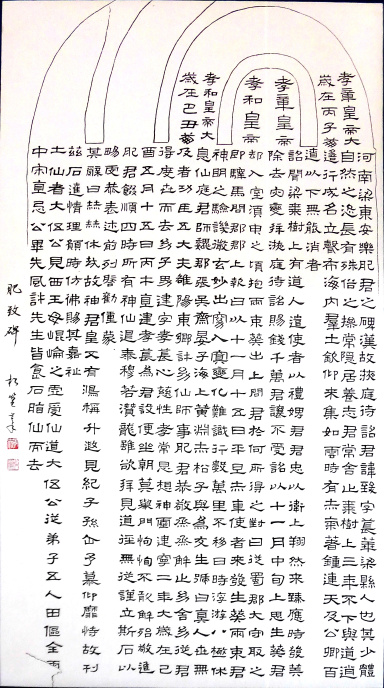 孝章皇帝大
歲在丙子崩
孝章皇帝
孝和皇帝
孝和皇帝大
歲在己丑崩
河南梁東安樂肥君之碑漢故掖庭待詔君諱致字萇華梁縣人也其少體
自然之恣長有殊俗之操常隱居養志君常舍止棗樹上三年不下與道逍
遙行成名立聲布海內群士欽仰來集如雲時有赤氣著鍾連天及公卿百
遼以下無能消者
詔聞梁棗樹上有道人遣使者以禮娉君君忠以衛上翔然來臻應時發算
除去災變拜掖庭待詔賜錢千萬君讓不受詔以十一月中旬上思生葵君
却入室須臾之頃抱兩束葵出上問君於何所得之對曰從蜀郡大守取之
即驛馬問郡郡上報曰以十一月十五日平旦赤車使者來發生葵兩束君
神明之驗譏徹玄妙出窈入冥變化難識行數萬里不移日時浮游八極休
息仙庭君師魏郡張吳齋晏子海上黃淵赤松子與為友生號曰真人世無
及者功臣五大夫雒陽東鄉許幼仙師事肥君恭敬烝烝解止幼舍從君
得度世而去幼子男建字孝萇心慈性孝常思想神靈建寧二年大歲在己
酉五月十五日丙午直建孝萇為君設便坐朝莫舉門恂恂不敢解殆敬進
肥君餟順四時所有神仙退泰穆若潛龍雖欲拜見道徑無從謹立斯石以
暢虔恭表述前列啟勸僮蒙
其辭曰赫赫休哉故神君皇又有鴻稱升遐見紀子孫企予慕仰靡恃故刊
茲石達情理願時仿佛賜其嘉祉
土仙者大伍公見西王母崐崘之虛受仙道大伍公從弟子五人田傴全雨
中宋直忌公畢先風許先生皆食石脂仙而去
肥致碑